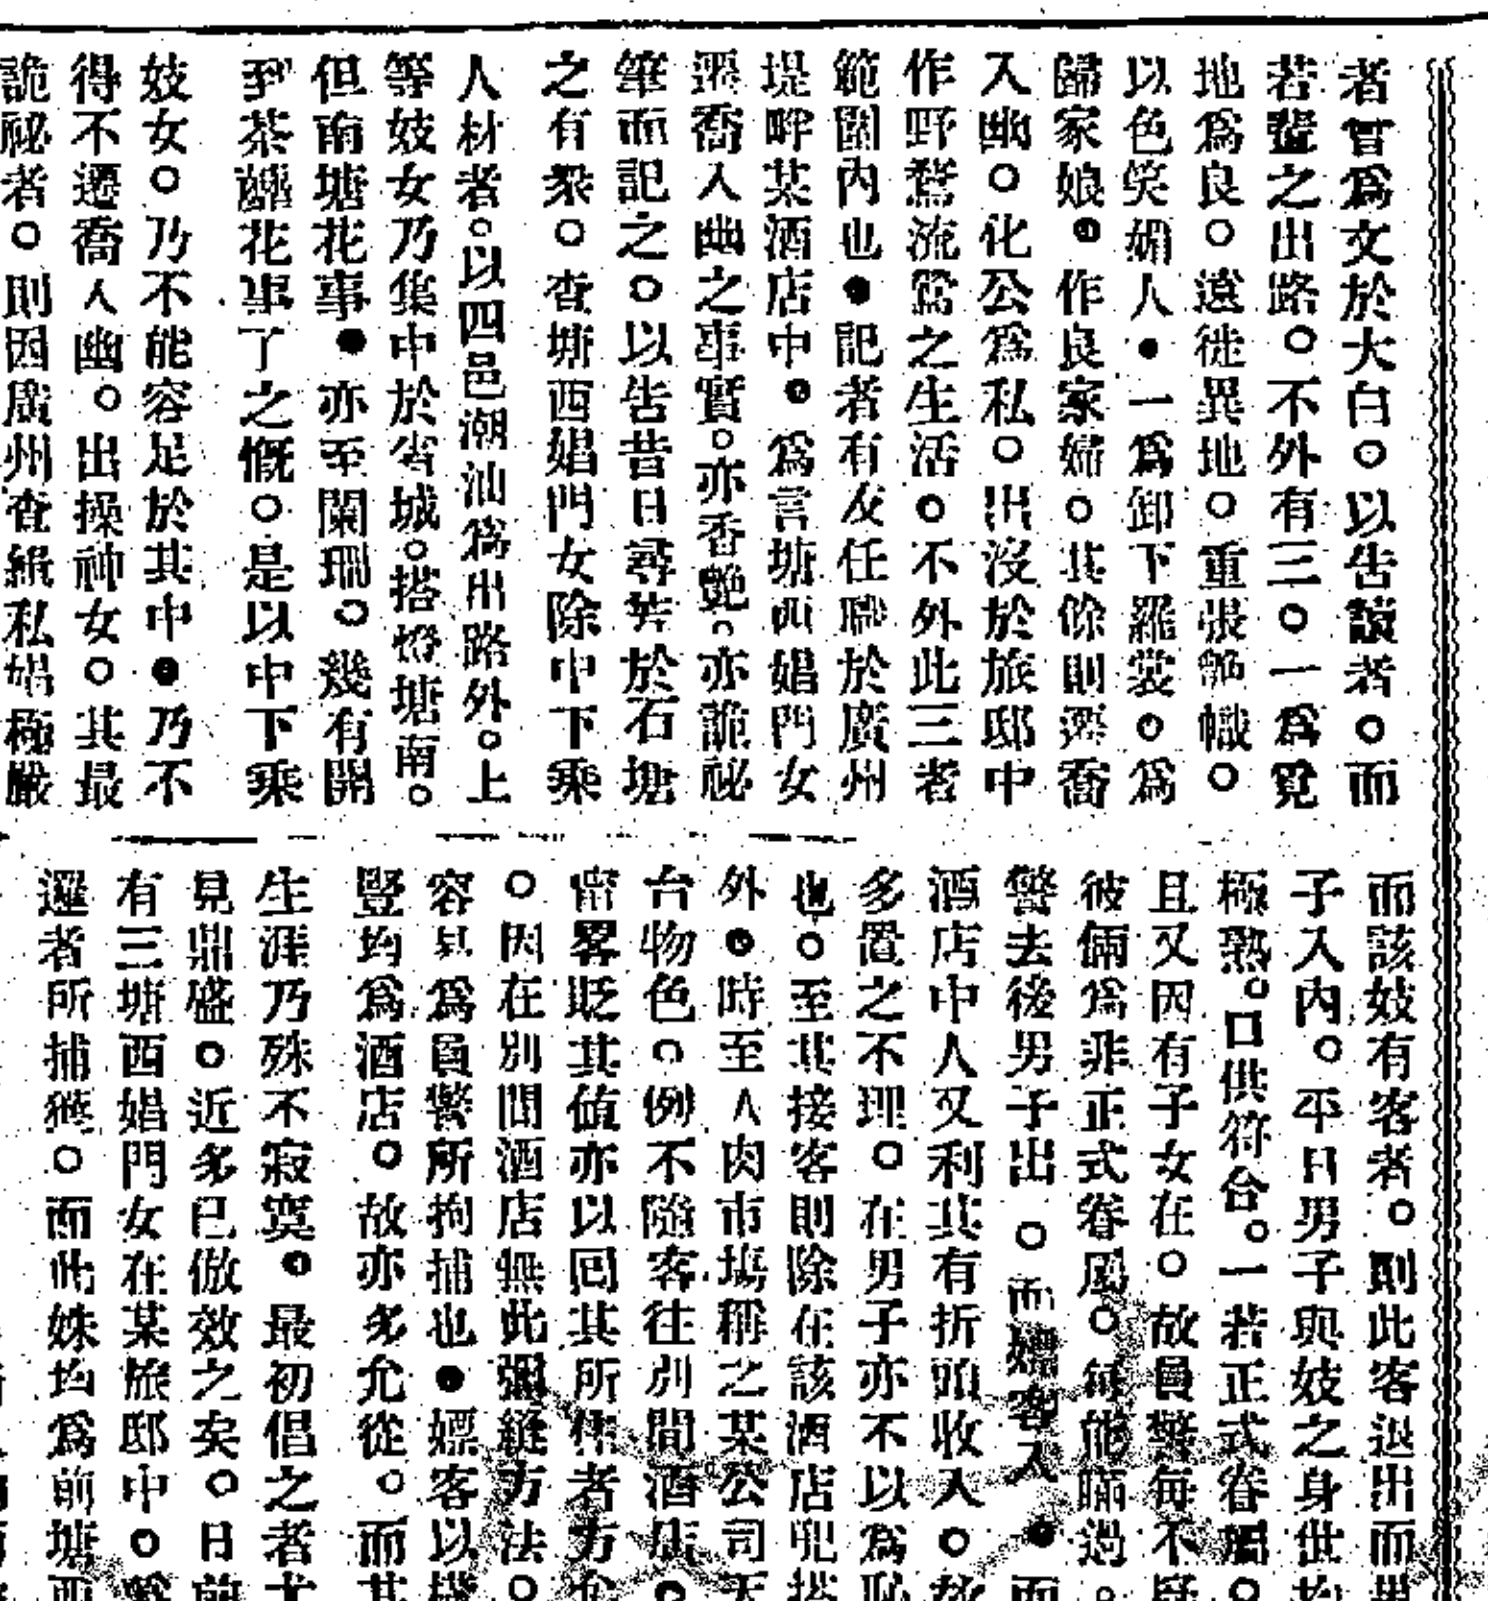 者曾爲文於大白。以告讀者。而
若輩之出路。不外有三。一爲覓
地爲良。遠徙異地。重張艷幟。
以色笑媚人。一爲卸下羅裳。爲
歸家娘。作良家婦。其餘則遷喬
入幽。化公爲私。出沒於旅邸中
作野鶩流鶯之生活。不外此三者
範圍內也。記者有友任職於廣州
堤畔某酒店中。爲言塘西娼門女
遷喬入幽之事實。亦香艷。亦詭祕
筆而記之。以告昔日尋芳於石塘
之有衆。查塘西娼門女除中下乘
人材者。以四邑潮汕爲出路外。上
等妓女乃集中於省城。搭燈塘南。
但南塘花事。亦至闌珊。幾有開
到茶蘼花事了之慨。是以中下乘
妓女。乃不能容足於其中。乃不
得不遷喬入幽。出操神女。其最
詭祕者。則因廣州查緝私娼極嚴
而該妓有客者。則此客退出而
子入內。平日男子與妓之身世
極熟。口供符合。一若正式眷屬。
且又因有子女在。故員警每不疑
彼倆爲非正式眷屬。每能瞞過。
警去後男子出。而嫖客入。而
酒店中人又利其有折頭收入。故
多置之不理。在男子亦不以爲恥
也。至其接客則除在該酒店兜搭
外。時至人肉市塲稱之某公司天
台物色。例不隨客往別間酒店。
畧貶其值亦以囘其所住者方
。因在別間酒店無此彌縫方法。
容易爲員警所拘捕也。嫖客以
豎均爲酒店。故亦多允從。而其
生涯乃殊不寂寞。最初倡之者尤
見鼎盛。近多已倣效之矣。日前
有三塘西娼門女在某旅邸中。
邏者所捕獲。而此姝均爲前塘西